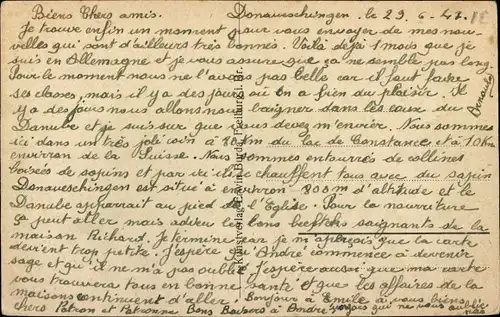 Biens Chers amis. Donaueschingen. le 29. 6. 47.
Je trouve enfin un moment pour vous envoyer de mes nou-
velles qui sont d'ailleurs très bonnes. Voilà déjà 1 mois que je
suis en Allemagne et je vous assure que ça ne semble pas long.
Pour le moment nous ne l'avons pas belle car il faut faire
ses classes, mais il y a des jours où on a bien du plaisir. Il
y a des jours nous allons nous baigner dans les eaux du
Danube et je suis sur que vous devez m'envier. Nous sommes
ici dans un très joli coin à km du lac de Constance et à 10 km
environ de la Suisse. Nous sommes entourés de collines
boisées de sapins et par ici ils se chauffent tous avec du sapin
Donaueschingen est situé à environ 800 m d'altitude et le
Danube apparrait au pied de l'Eglise. Pour la nourriture
ça peut aller mais adieu les bons beefteks saignants de la
maison Richard. Je termine car je m'aperçois que la carte
devient trop petite. J'espère qu'André commence à devenir
sage et qu'il ne m'a pas oublié. J'espère aussi que ma carte
vous trouvera tous en bonne santé et que les affaires de la
maisons continuent d'aller. Bonjour à Emile à vous biens
chers Patron et Patronne Bons Baisers à André
Kunstverlag Erwin Burda, Freiburg i. Br.